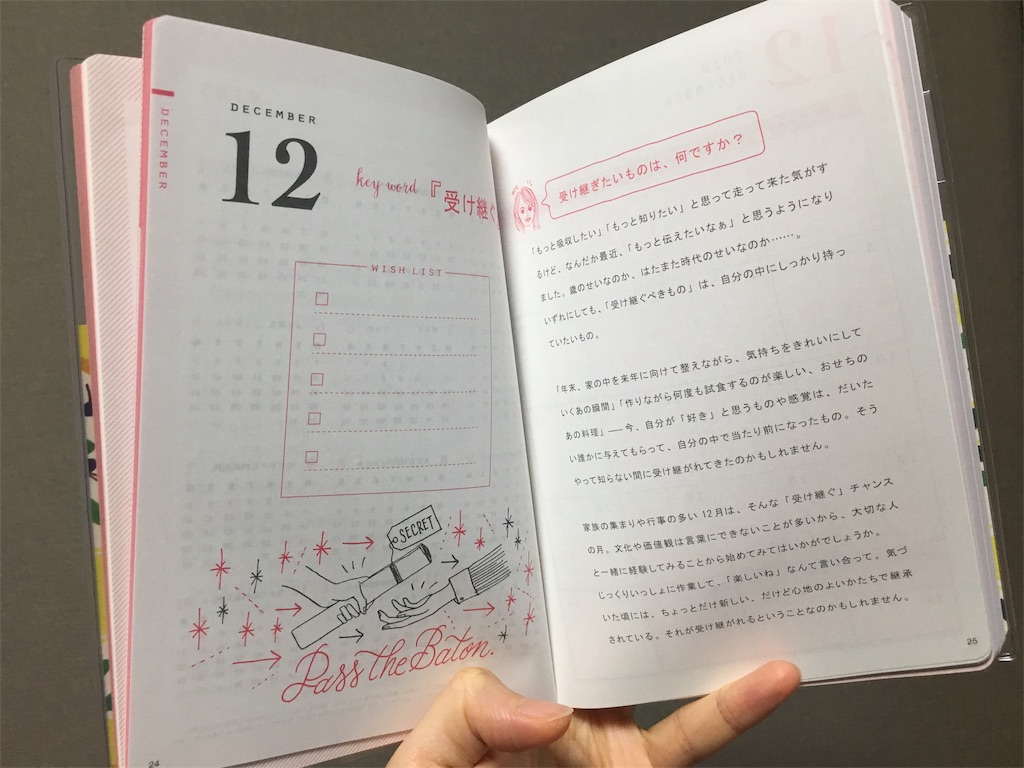 DECEMBER
DECEMBER
12
key word『受け継ぐ』
WISH LIST
SECRET
Pass the Baton.
24
受け継ぎたいものは、何ですか？
「もっと吸収したい」「もっと知りたい」と思って走って来た気がす
るけど、なんだか最近、「もっと伝えたいなぁ」と思うようになり
ました。歳のせいなのか、はたまた時代のせいなのか……。
いずれにしても、「受け継ぐべきもの」は、自分の中にしっかり持っ
ていたいもの。
「年末、家の中を来年に向けて整えながら、気持ちをきれいにして
いくあの瞬間」「作りながら何度も試食するのが楽しい、おせちの
あの料理」──今、自分が「好き」と思うものや感覚は、だいた
い誰かに与えてもらって、自分の中で当たり前になったもの。そう
やって知らない間に受け継がれてきたのかもしれません。
家族の集まりや行事の多い12月は、そんな「受け継ぐ」チャンス
の月。文化や価値観は言葉にできないことが多いから、大切な人
と一緒に経験してみることから始めてみてはいかがでしょうか。
じっくりいっしょに作業して、「楽しいね」なんて言い合って。気づ
いた頃には、ちょっとだけ新しい、だけど心地のよいかたちで継承
されている。それが受け継がれるということなのかもしれません。
25